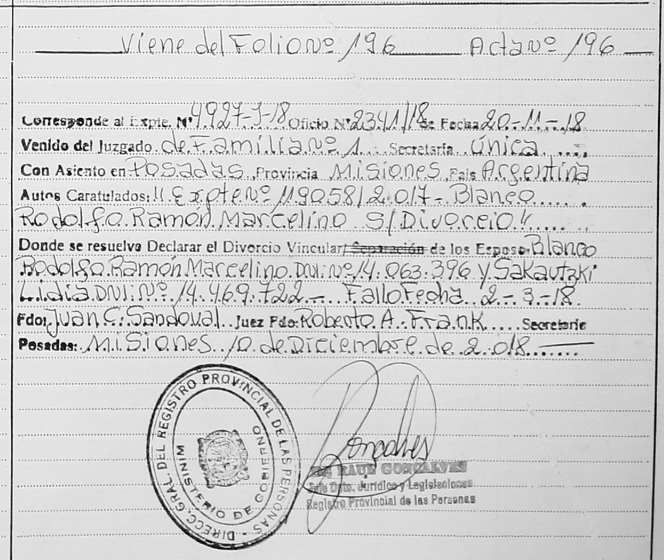 Viene del Folio Nº 196 Acta Nº 196
Corresponde al Expte. Nº 4927-J-18 Oficio Nº 2341/18 de Fecha 20-11-18
Venido del Juzgado de Familia Nº 1 Secretaría Única
Con Asiento en Posadas Provincia Misiones País Argentina
Autos Caratulados: "Expte Nº 119058/2.017-Blanco
Rodolfo Ramón Marcelino S/Divorcio"
Donde se resuelve Declarar el Divorcio Vincular/ Separación de los Esposo Blanco
Rodolfo Ramón Marcelino DNI. Nº 14.063.396 y Sakautzki
Lidia DNI. Nº 14.469.722 - Fallo Fecha 2-3-18.
Fdo: Juan C. Sandoval Juez Fdo: Roberto A. Frank Secretario
Posadas: Misiones 10 de Diciembre de 2.018
DIRECC. GRAL. DEL REGISTRO PROVINCIAL DE LAS PERSONAS
MINISTERIO DE GOBIERNO
RAUL GONCALVES
Jefe Dpto. Jurídico y Legislaciones
Registro Provincial de las Personas